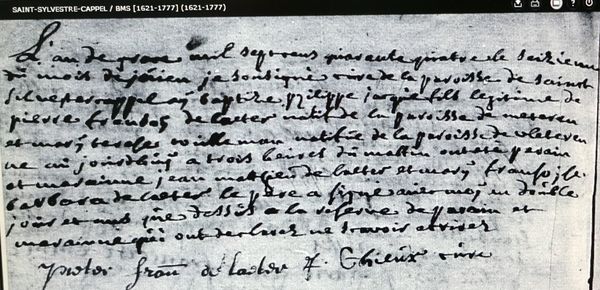 SAINT-SYLVESTRE-CAPPEL / BMS [1621-1777] (1621-1777)
L'an de grace mil sept cens quarante quatre le seizieme
du mois de je soussigné curé de la paroisse de saint
Silvestrecappel ay baptizé philippe jacque fils legitime de
pierre françois de laeter natif de la paroisse de meteren
et mary terese native de la paroisse de vleteren
né au jourdhuy a trois heures du mattin ont été parain
et marainne jean mattieu de laeter et mary françoise
barbara de laeter le père a signé avec moy un double
jour et mois que dessus a la reserve de parain et
marainne qui ont declarez ne scavoir ecrire
pieter fran de laeter J. Thieux curé